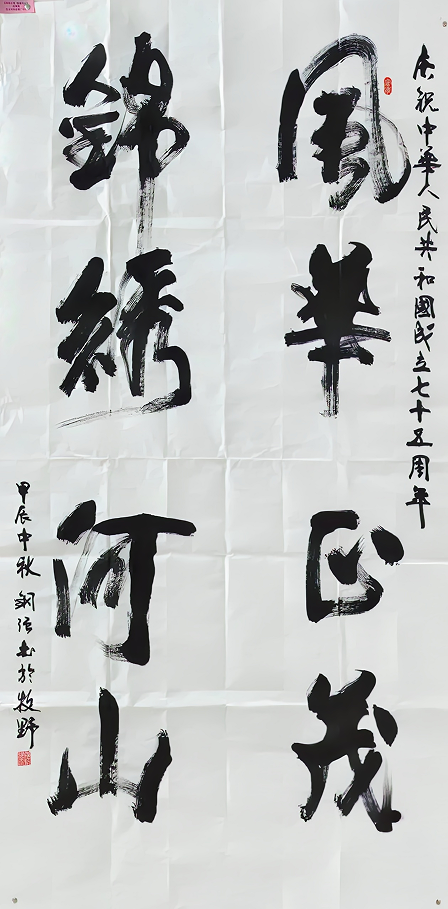 庆祝中華人民共和國成立七十五周年
風華正茂
錦綉河山
甲辰中秋 书於牧野